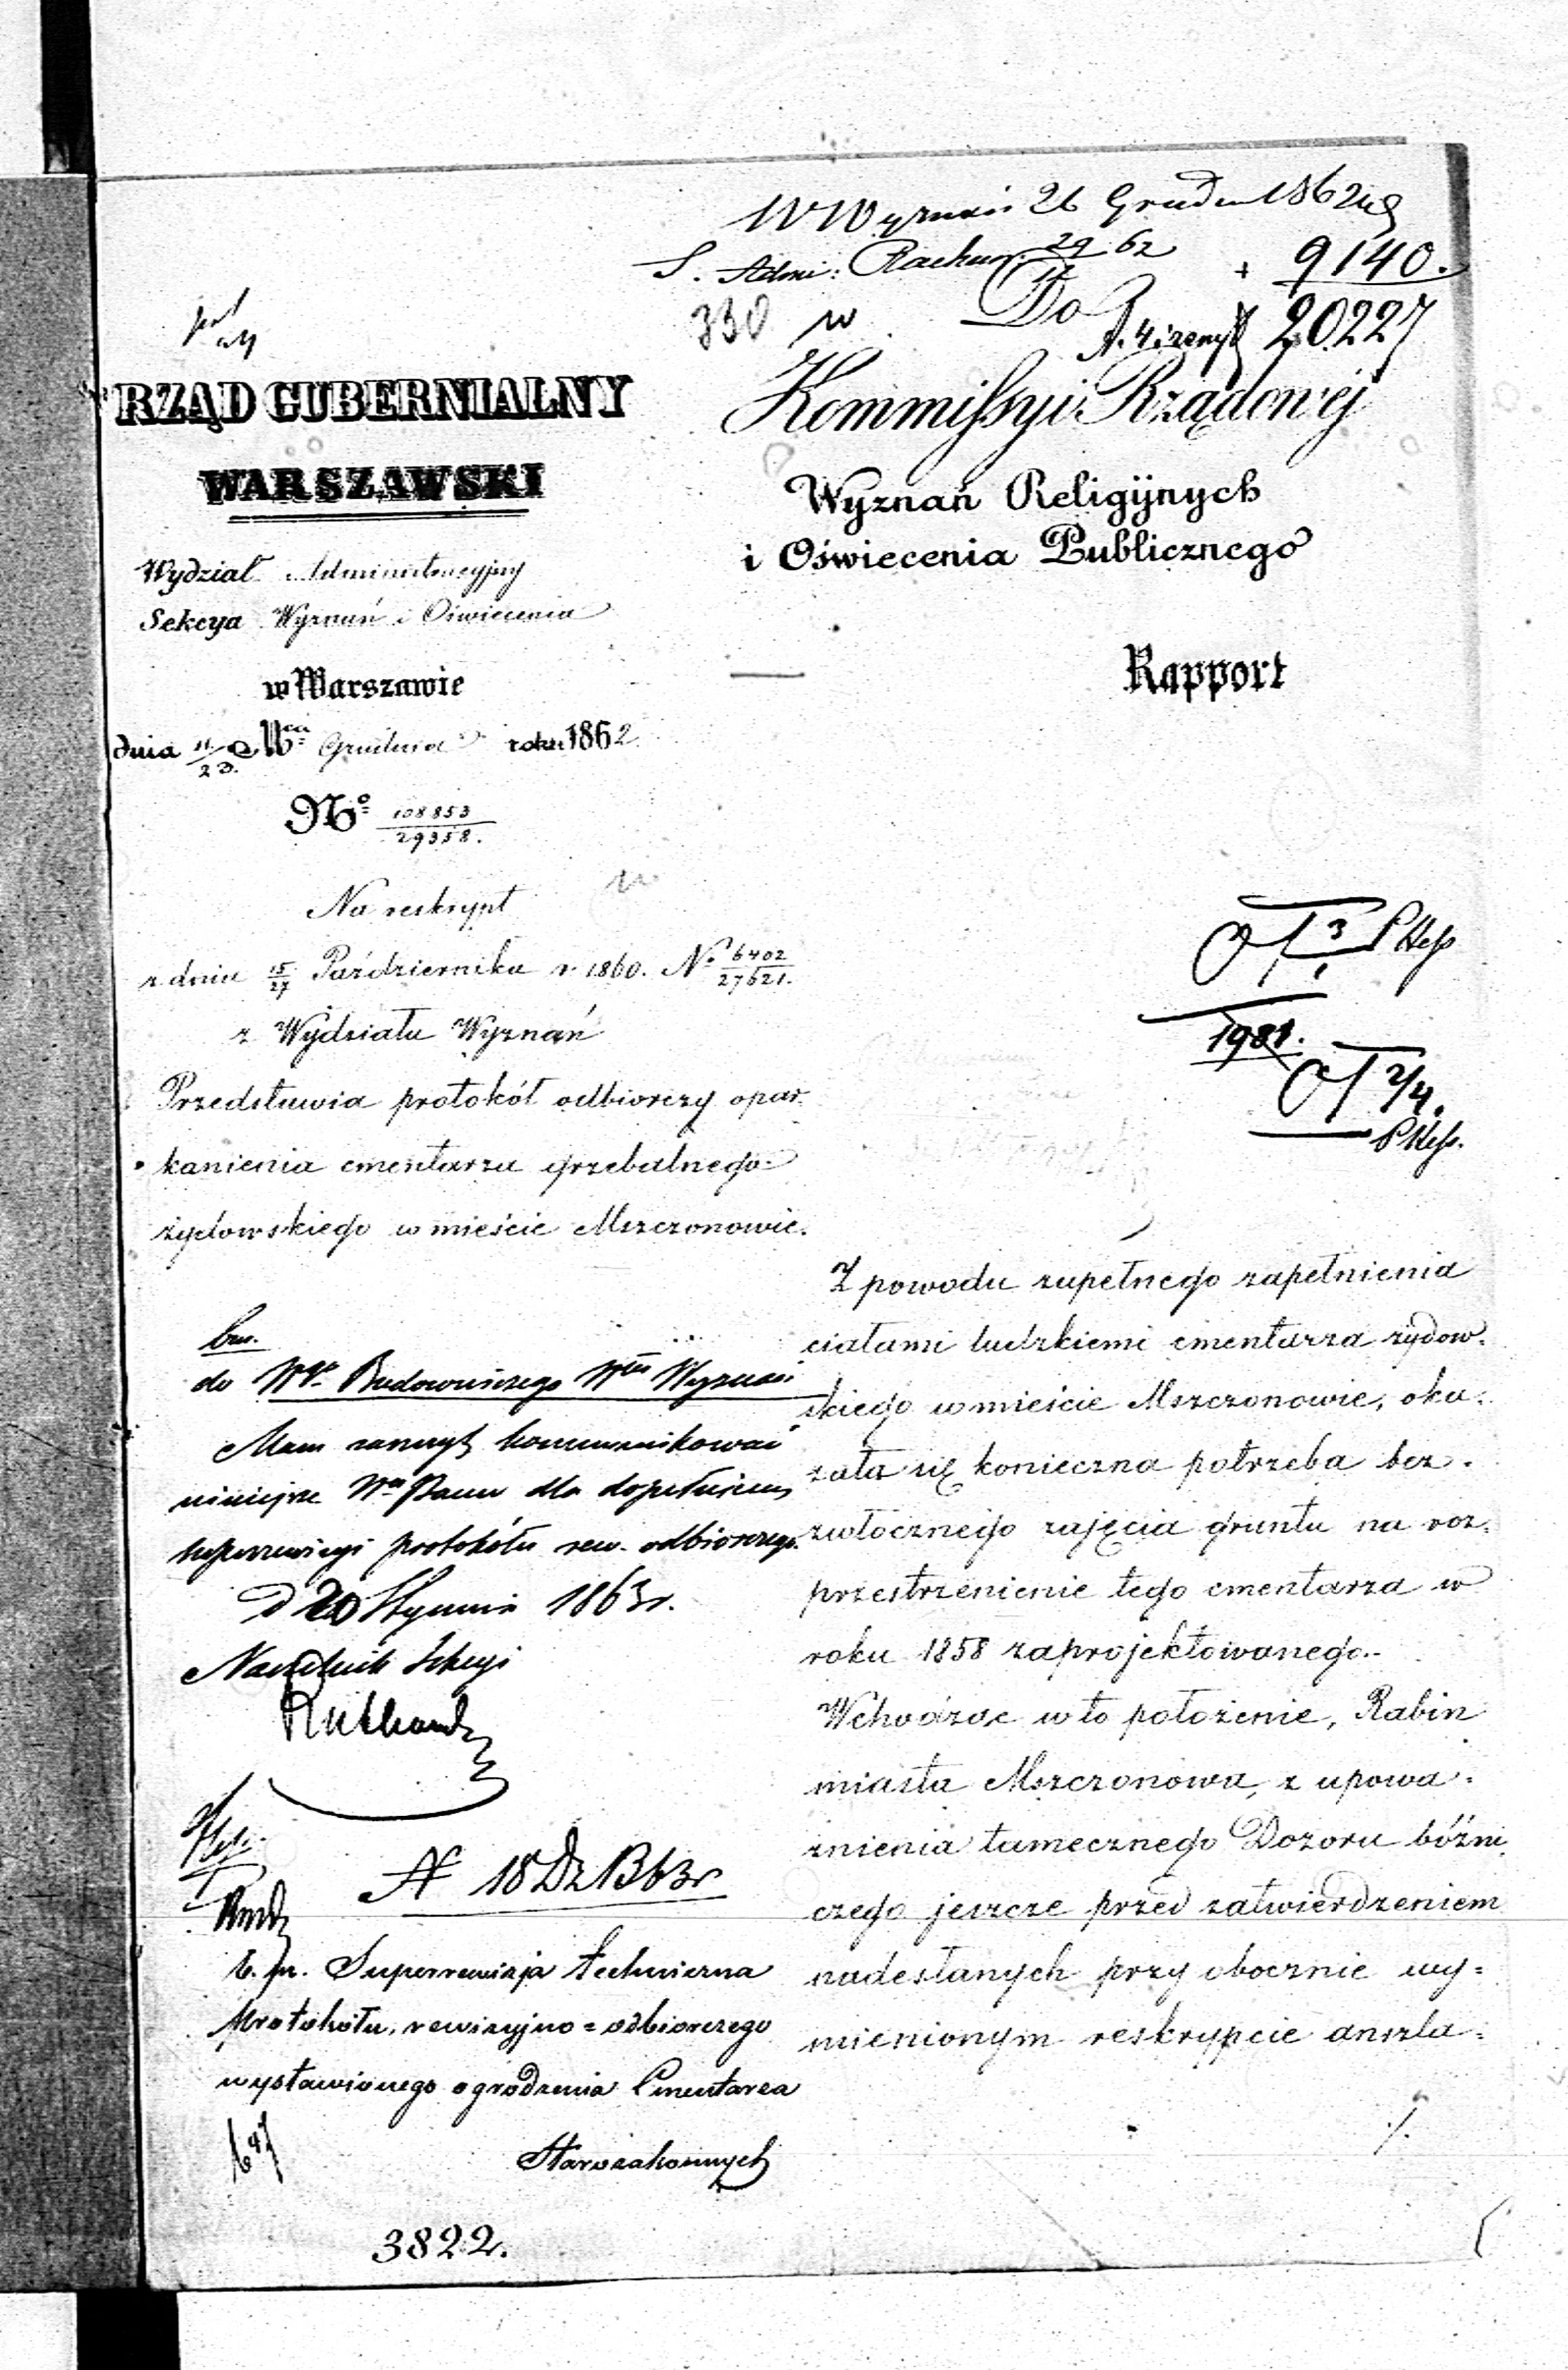 26 Grud 1862
9140.
29 62
Do
330 w
20227
RZĄD GUBERNIALNY
WARSZAWSKI
Kommissyi Rządowéj
Wyznań Religijnych
i Oświecenia Publicznego
Wydział Administracyjny
Sekcya Wyznań i Oświecenia
w Warszawie
Rapport
dnia 11/23 Grudnia roku 1862
No 108853/29358.
Na reskrypt
z dnia 15/27 Października r. 1860. No 6402/27621.
z Wydziału Wyznań
Przedstawia protokół odbiorczy opar-
kanienia cmentarza grzebalnego
żydowskiego w mieście Mszczonowie.
1981.
2/4.
Z powodu zupełnego zapełnienia
ciałami ludzkiemi cmentarza żydow-
skiego w mieście Mszczonowie, oka-
zała się konieczna potrzeba bez-
zwłocznego zajęcia gruntu na roz-
przestrzenienie tego cmentarza w
roku 1858 zaprojektowanego.
Wchodząc w to położenie, Rabin
miasta Mszczonowa, z upowa-
żnienia tamecznego Dozoru bóżni-
czego jeszcze przed zatwierdzeniem
nadesłanych przy obocznie wy-
mienionym reskrypcie anszla-
do Budowniczego Wyznań
Mam zaszczyt kommunikować
niniejsze Panu dla dopełnienia
superrewizyi protokółu rew. odbiorczego.
d 20 Stycznia 1863 r.
Naczelnik Sekcyi
N 18 Dz B 63 r
Superrewizja techniczna
Protokołu, rewizyjno-odbiorczego
wystawionego ogrodzenia Cmentarza
Starozakonnych
3822.